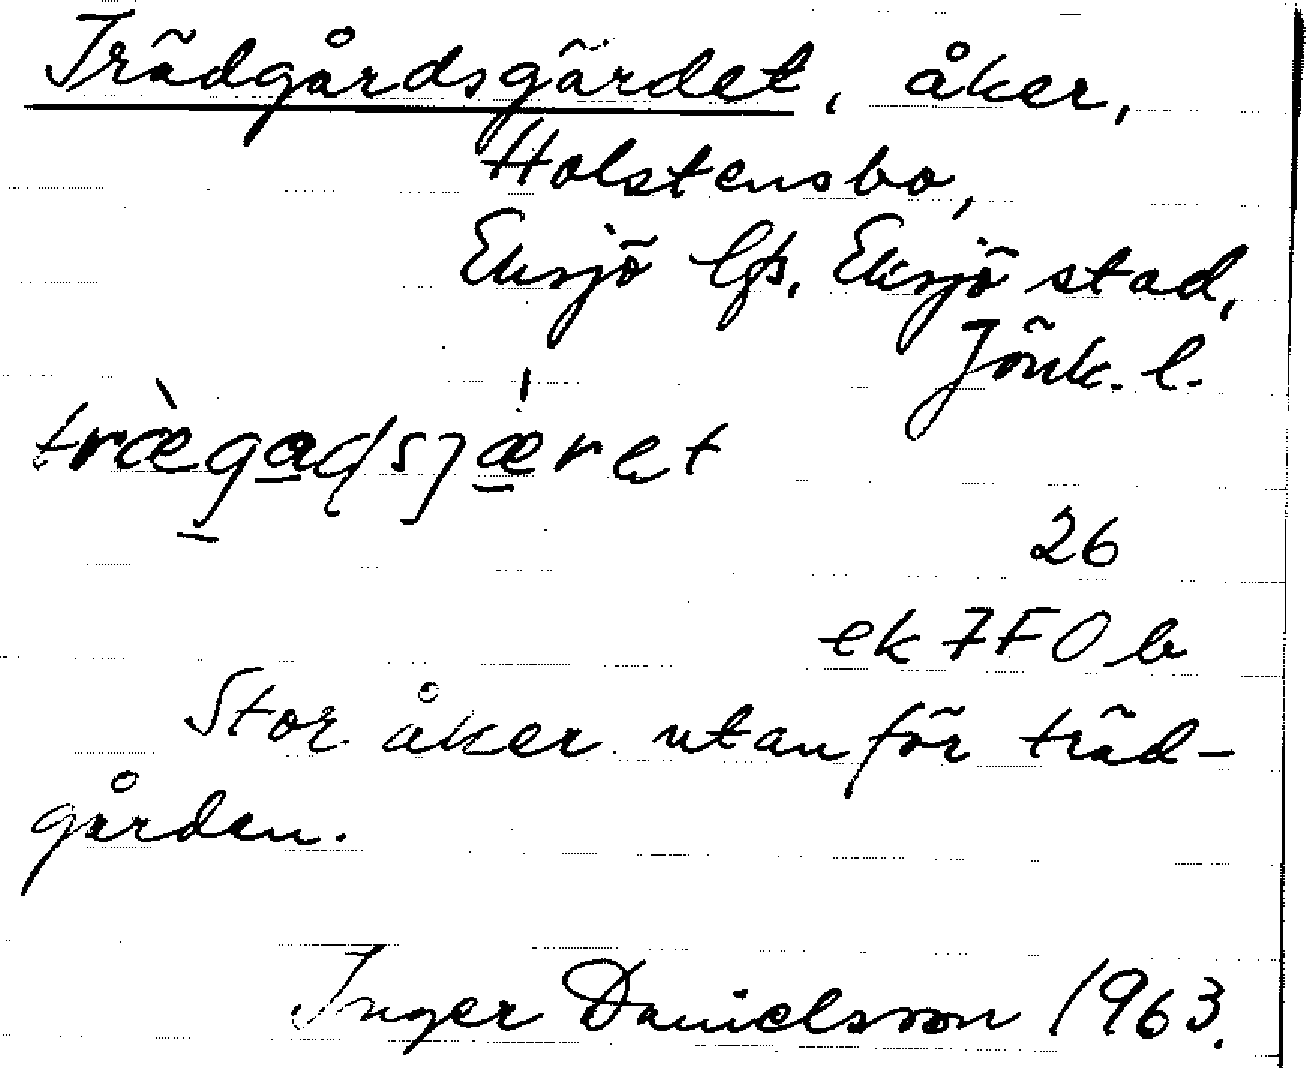 Trädgårdsgärdet, åker,
Holstensbo,
Eksjö lfs. Eksjö stad,
Jönk. l.
26
ek 7F0b
Stor åker utanför träd-
gården.
Inger Danielsson 1963.